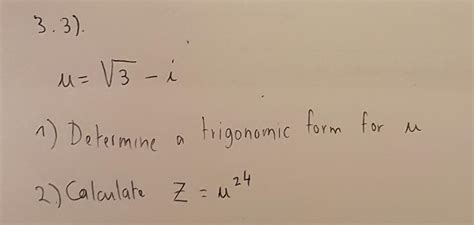 3.3).
u = √3 - i
1) Determine a trigonomic form for u
2) Calculate Z = u²⁴